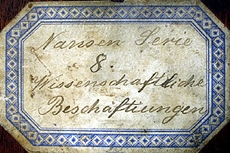 Nansen Serie
8.
Wissenschaftliche
Beschäftiungen